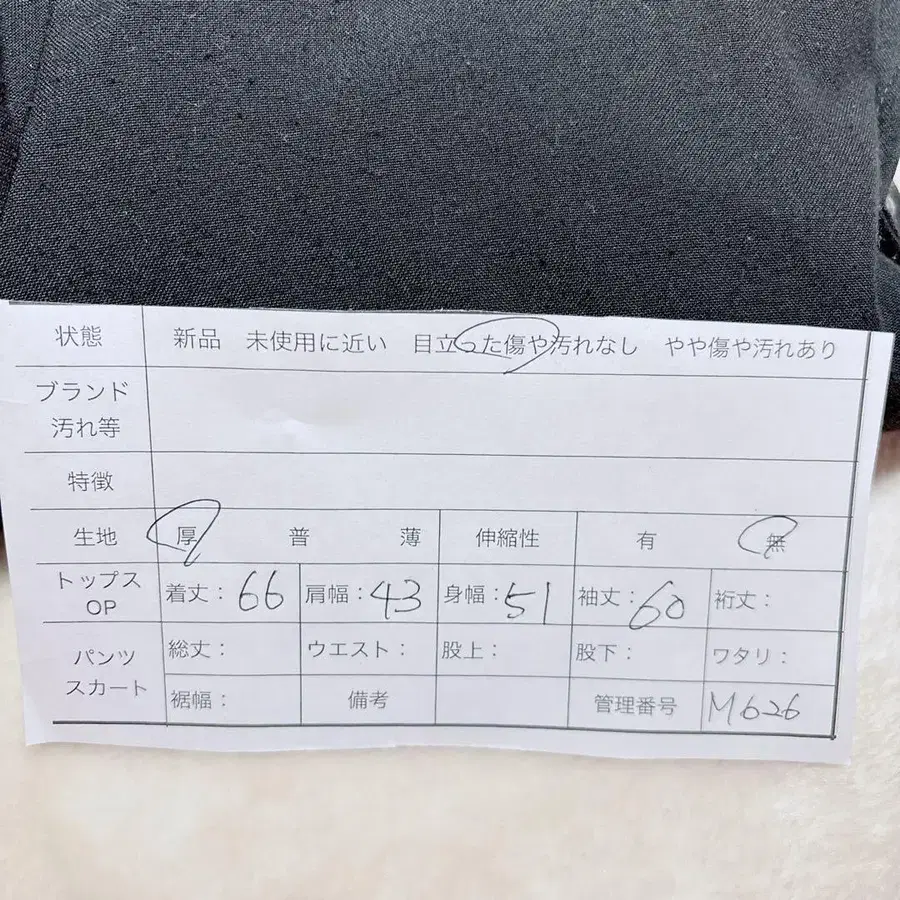 状態 新品 未使用に近い 目立った傷や汚れなし やや傷や汚れあり
ブランド
汚れ等
特徴
生地 厚 普 薄 伸縮性 有 無
トップス
OP
着丈: 66 肩幅: 43 身幅: 51 袖丈: 60 裄丈:
パンツ
スカート
総丈: ウエスト: 股上: 股下: ワタリ:
裾幅: 備考 管理番号 M626